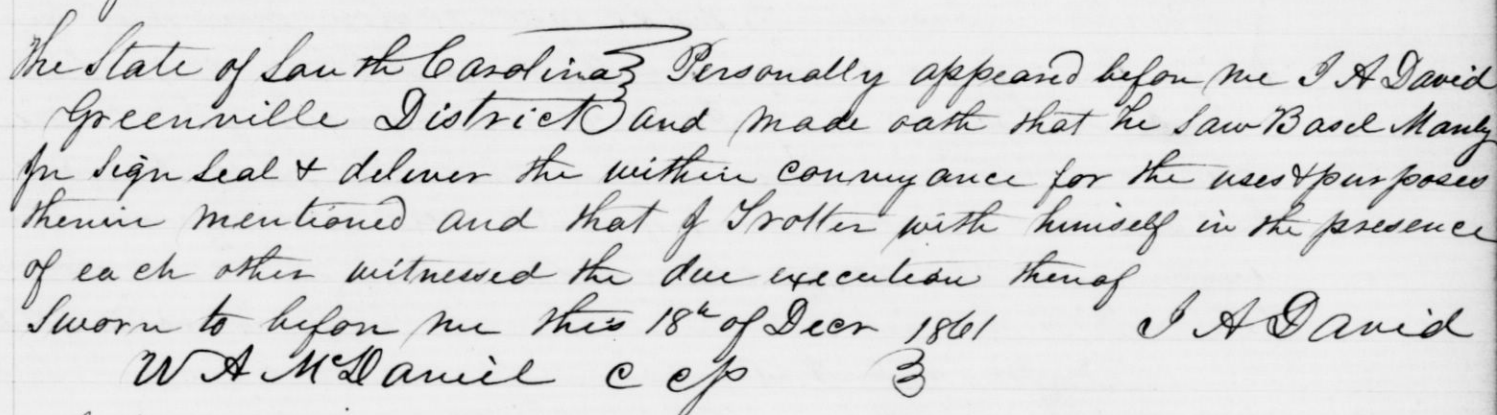 The State of South Carolina } Personally appeared before me J A David
Greenville District } and made oath that he saw Basil Manly
Jr sign seal & deliver the within conveyance for the uses & purposes
therein mentioned and that J Trotter with himself in the presence
of each other witnessed the due execution thereof
Sworn to before me this 18th of Decr 1861 J A David
W A McDaniel C C P }